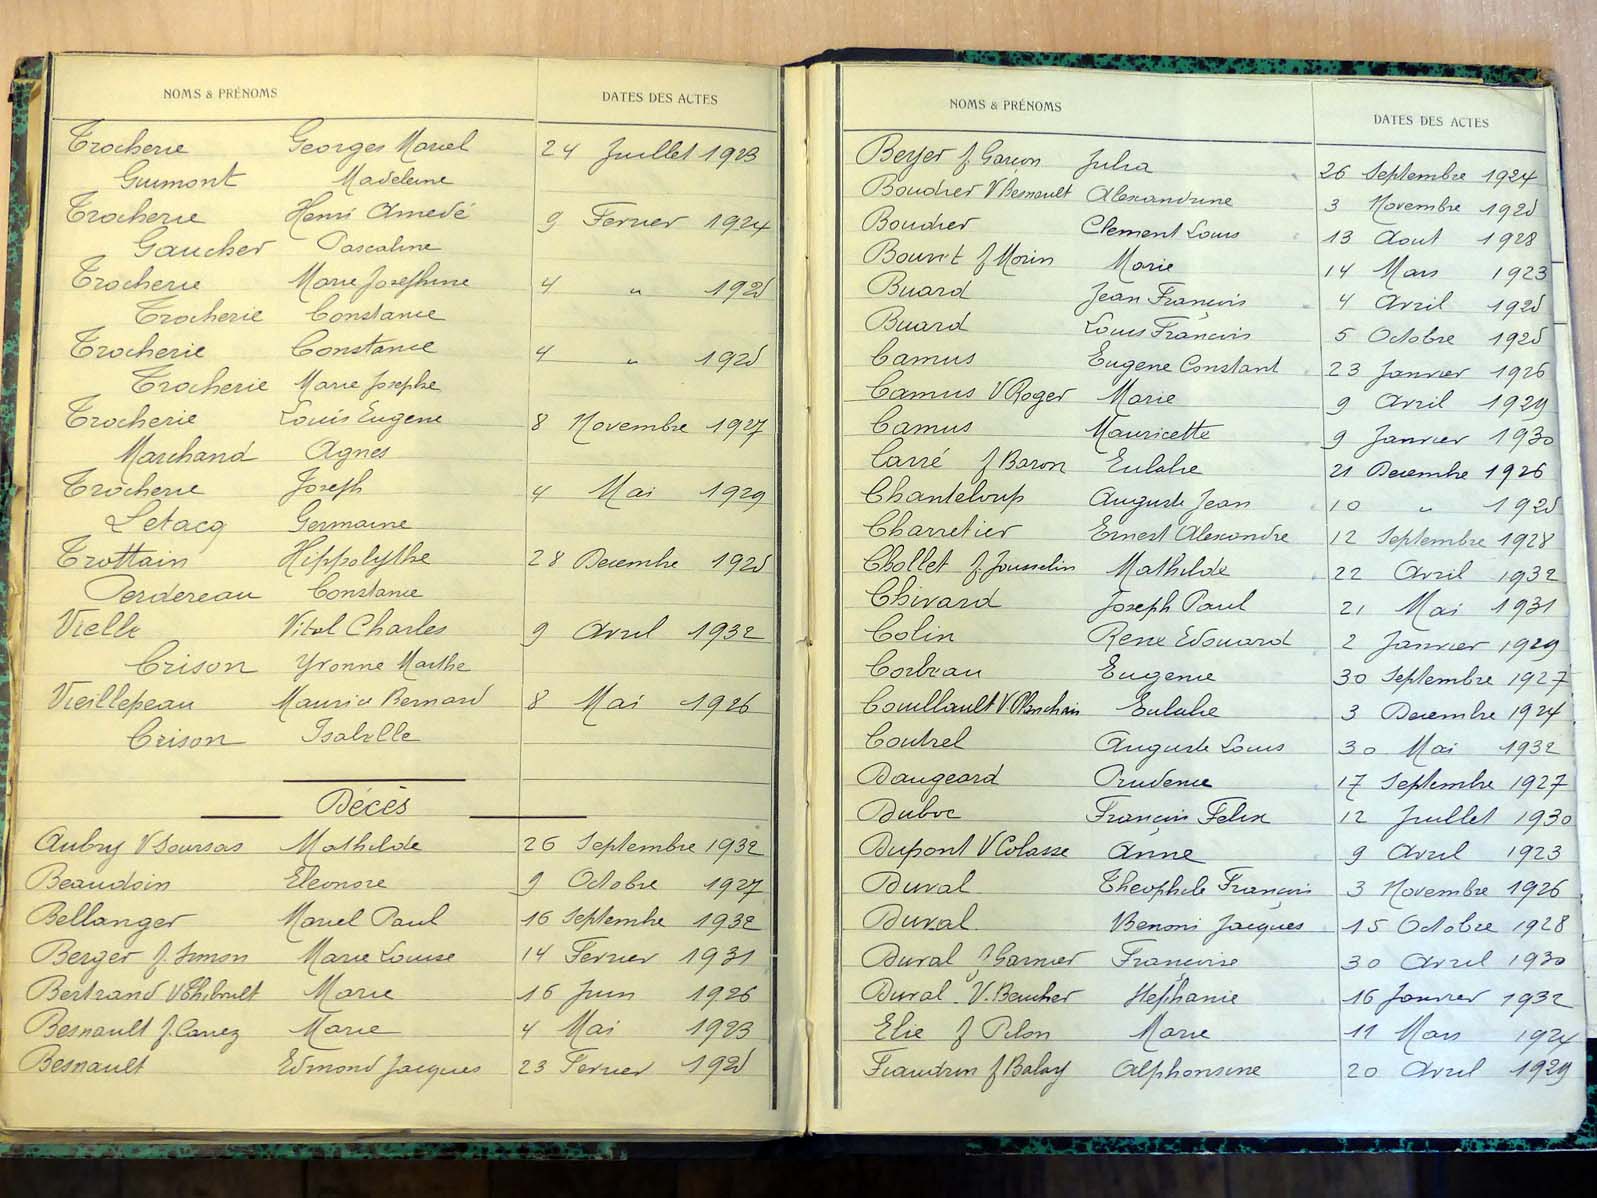 NOMS & PRÉNOMS DATES DES ACTES
Trocherie Georges Marcel 24 Juillet 1923
Guimont Madeleine
Trocherie Henri Amedé 9 Fevrier 1924
Gaucher Pascaline
Trocherie Marie Josephine 4 " 1925
Trocherie Constance
Trocherie Constance 4 " 1925
Trocherie Marie Josephe
Trocherie Louis Eugene 8 Novembre 1927
Marchand Agnes
Trocherie Joseph 4 Mai 1929
Letacq Germaine
Trottain Hippolythe 28 Decembre 1925
Perdereau Constance
Vielle Vital Charles 9 Avril 1932
Crison Yvonne Marthe
Vieillepeau Maurice Bernard 8 Mai 1926
Crison Isabelle
Décès
Aubry V Soursas Mathilde 26 Septembre 1932
Beaudoin Eleonore 9 Octobre 1927
Bellanger Marcel Paul 16 Septembre 1932
Berger f. Simon Marie Louise 14 Fevrier 1931
Bertrand V Thibault Marie 16 Juin 1926
Besnault f. Carrez Marie 4 Mai 1923
Besnault Edmond Jacques 23 Fevrier 1925
NOMS & PRÉNOMS DATES DES ACTES
Beyer f. Garçon Julia 26 Septembre 1924
Boudier V Besnault Alexandrine 3 Novembre 1925
Boudier Clement Louis 13 Aout 1928
Bouvet f Morin Marie 14 Mars 1923
Buard Jean François 4 Avril 1925
Buard Louis François 5 Octobre 1925
Camus Eugene Constant 23 Janvier 1926
Camus V Roger Marie 9 Avril 1929
Camus Mauricette 9 Janvier 1930
Carré f Baron Eulalie 21 Decembre 1926
Chanteloup Auguste Jean 10 " 1925
Charretier Ernest Alexandre 12 Septembre 1928
Chollet f. Jousselin Mathilde 22 Avril 1932
Chivard Joseph Paul 21 Mai 1931
Colin Rene Edouard 2 Janvier 1929
Corbeau Eugenie 30 Septembre 1927
Couillault V Eulalie 3 Decembre 1924
Coutrel Auguste Louis 30 Mai 1932
Daugeard Prudence 17 Septembre 1927
Duboc François Felix 12 Juillet 1930
Dupont V Colasse Anne 9 Avril 1923
Duval Theophile François 3 Novembre 1926
Duval Benoni Jacques 15 Octobre 1928
Duval f Garnier Françoise 30 Avril 1930
Duval V. Beucher Stephanie 16 Janvier 1932
Elie f Pilon Marie 11 Mars 1924
Flandrin f Balay Alphonsine 20 Avril 1929